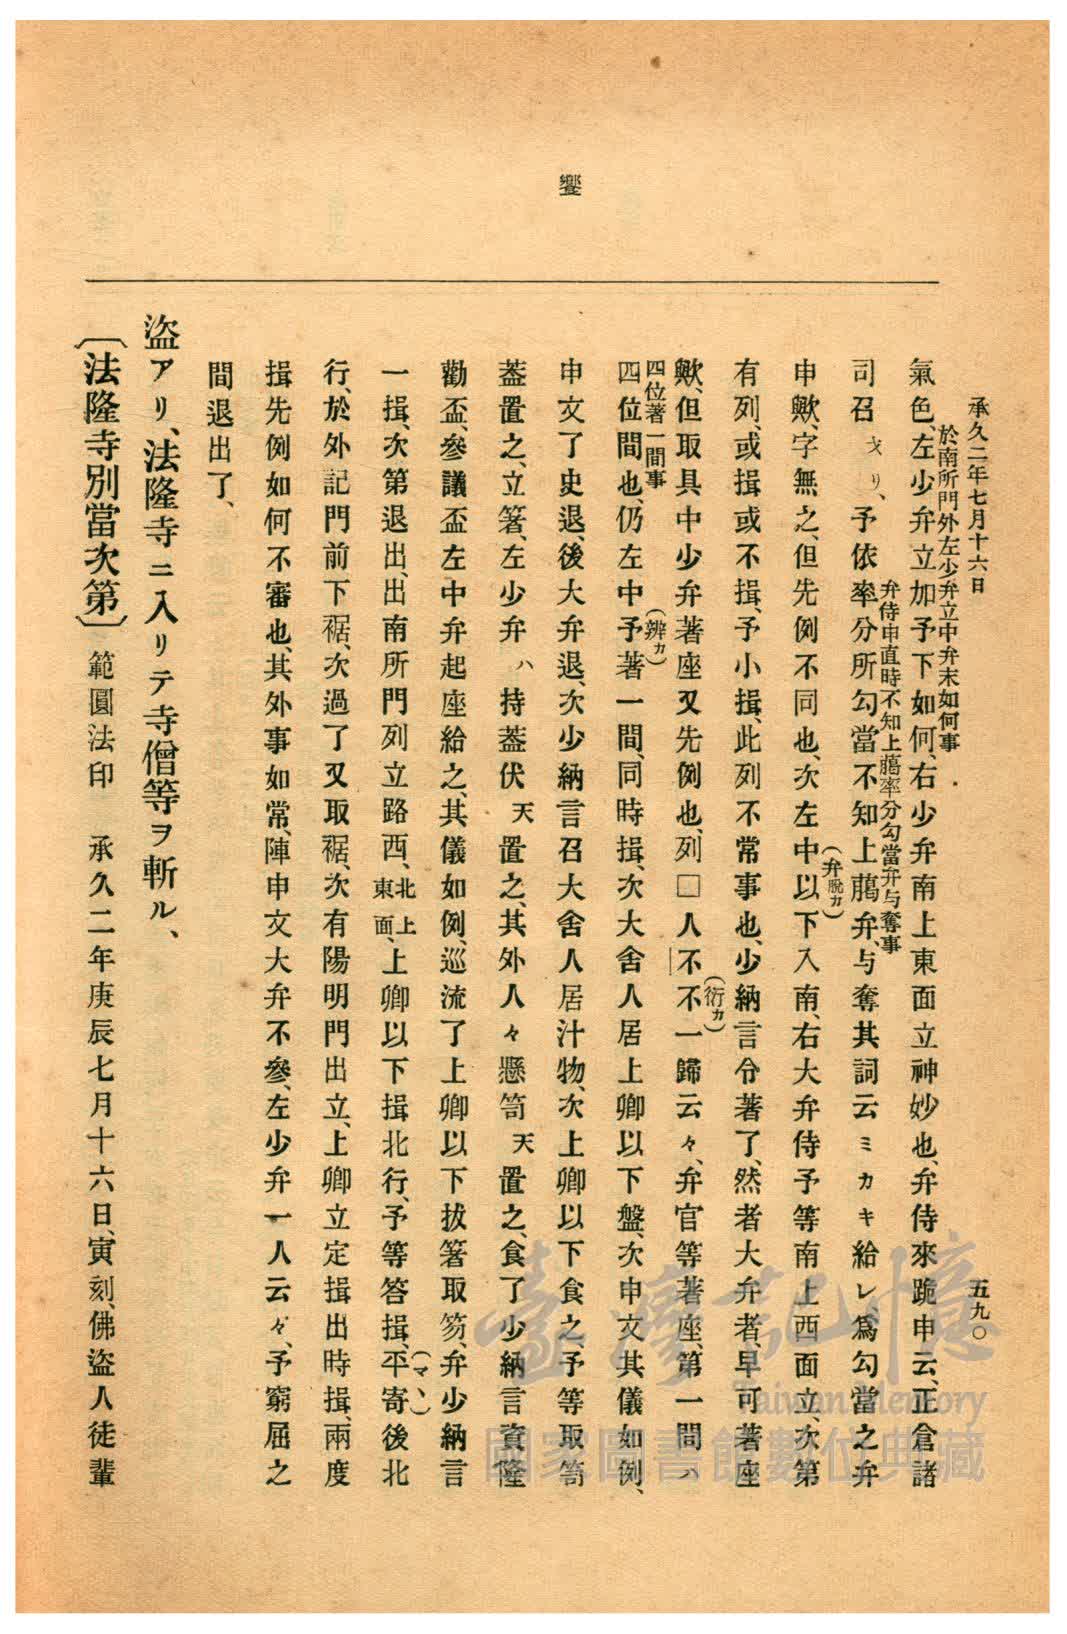 承久二年七月十六日
五九〇
饗
於南所門外左少弁立中弁末如何事
氣色、左少弁立加予下如何、右少弁南上東面立神妙也、弁侍來跪申云、正倉諸
弁侍申直時不知上﨟率分勾當弁与奪事
司召ㇳリ、予依率分所勾當不知上﨟弁、与奪其詞云ミカキ給レ爲勾當之弁
申歟、字無之、但先例不同也、次左中以下入南、右大弁侍予等南上西面立、次第
(弁脱カ)
有列、或揖或不揖、予小揖、此列不常事也、少納言令著了、然者大弁者、早可著座
歟、但取具中少弁著座又先例也、列□人不不一歸云々、弁官等著座、第一間ハ
(衍カ)
四位著一間事
四位間也、仍左中予著一間、同時揖、次大舍人居上卿以下盤、次申文其儀如例、
(辨カ)
申文了史退、後大弁退、次少納言召大舍人居汁物、次上卿以下食之、予等取笥
蓋置之、立箸、左少弁ハ持蓋伏天置之、其外人々懸笥天置之、食了少納言資隆
勸盃、參議盃左中弁起座給之、其儀如例、巡流了上卿以下拔箸取笏、弁少納言
一揖、次第退出、出南所門列立路西、北上東面、上卿以下揖北行、予等答揖、平寄後北
(マヽ)
行、於外記門前下裾、次過了又取裾、次有陽明門出立、上卿立定揖出時揖、兩度
揖先例如何不審也、其外事如常、陣申文大弁不參、左少弁一人云々、予窮屈之
間退出了、
盜アリ、法隆寺ニ入リテ寺僧等ヲ斬ル、
〔法隆寺別當次第〕範圓法印 承久二年庚辰七月十六日、寅刻、佛盜人徒輩
臺灣記憶
Taiwan Memory
國家圖書館數位典藏